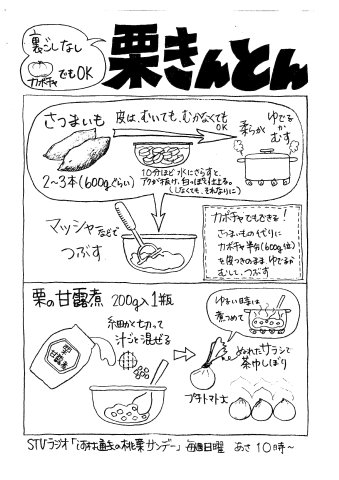 裏ごしなし
カボチャでもOK
栗きんとん
さつまいも
2〜3本(600gぐらい)
皮は、むいても、むかなくても
OK
10分ほど水にさらすと、
アクが抜け、白っぽく仕上る。
(しなくても、それなりに)
柔らかく
ゆでる
か
むす
マッシャーなどで
つぶす
カボチャでもできる!
さつまいもの代りに
カボチャ半分(600g位)
を皮つきのまま、ゆでるか
むして、つぶす
栗の甘露煮 200g入1瓶
栗
甘露煮
細かく切って
汁ごと混ぜる
ゆるい時は
煮つめて
ぬれたサラシで
茶巾しぼり
プチトマト大
STVラジオ「河村通夫の桃栗サンデー」毎週日曜 あさ10時〜